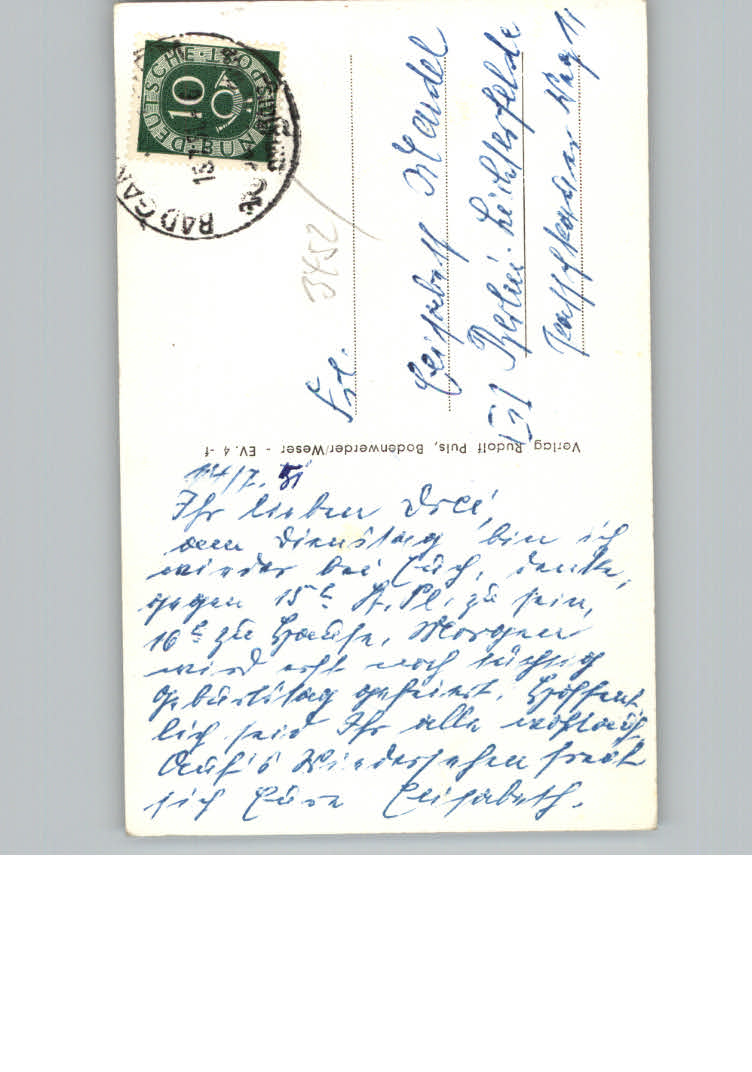 14/7. 51
Ihr lieben Drei,
am Dienstag bin ich
wieder bei Euch, denke,
gegen 15 h zu sein,
16 h zu Hause. Morgen
wird erst noch tüchtig
Geburtstag gefeiert. Hoffent-
lich seid Ihr alle wohlauf.
Auf's Wiedersehen freut
sich Eure Elisabeth.
Verlag Rudolf Puls, Bodenwerder/Weser - EV. 4 -f
DEUTSCHE BUNDESPOST
10
BAD GAN
3452
Frl.
Elisabeth Mandel
Berlin-Lichterfelde
Weg 11